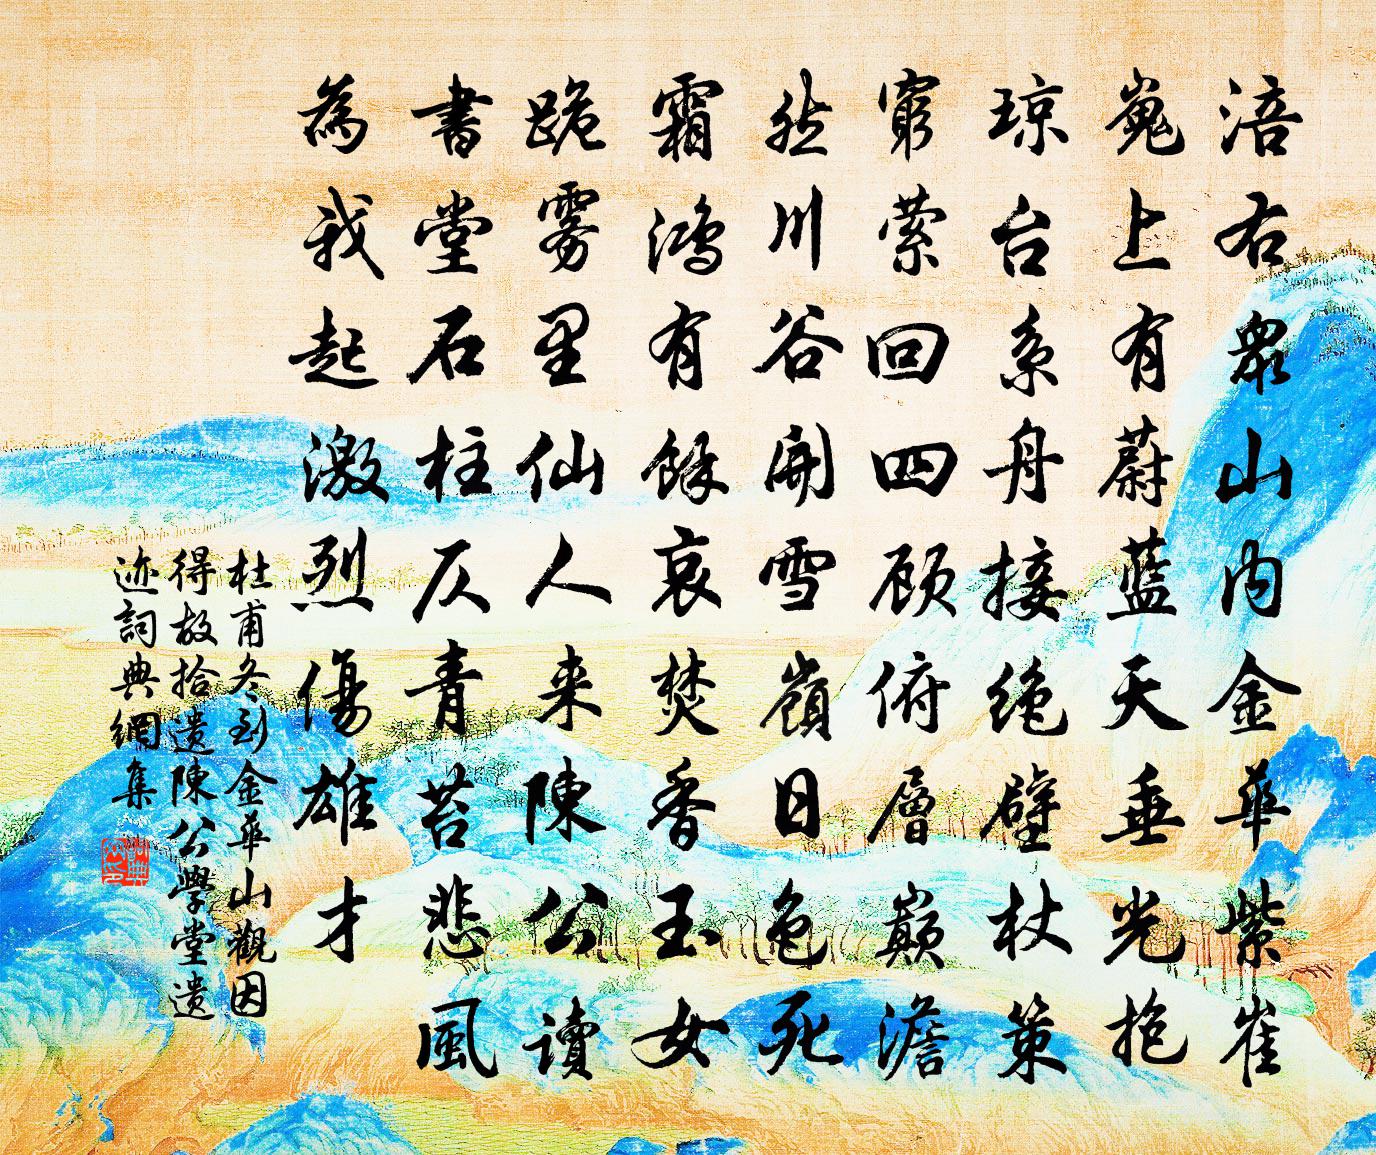 涪右眾山內金華紫崔
嵬上有蔚藍天垂光抱
琼台系舟接绝壁杖策
窮萦回四顾俯層巅澹
然川谷開雪嶺日色死
霜鴻有餘哀焚香玉女
跪雾里仙人来陳公讀
書堂石柱仄青苔悲風
為我起激烈傷雄才
杜甫冬到金華山觀因
得故拾遗陳公學堂遗
迹詞典網集